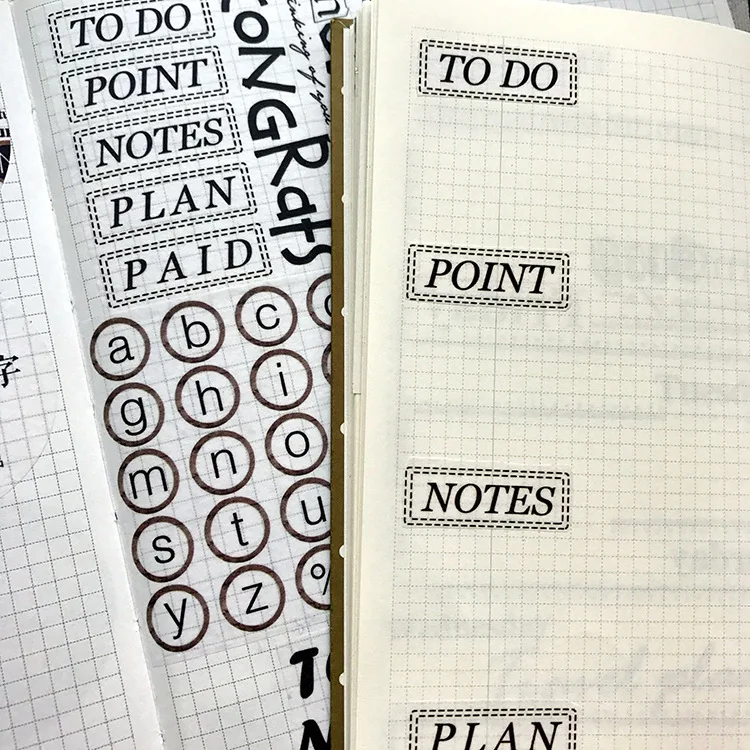 TO DO
POINT
NOTES
PLAN
PAID
CONGRATS
of you
a b c
g h i
m n o
s t u
y z %
字
TO DO
POINT
NOTES
PLAN